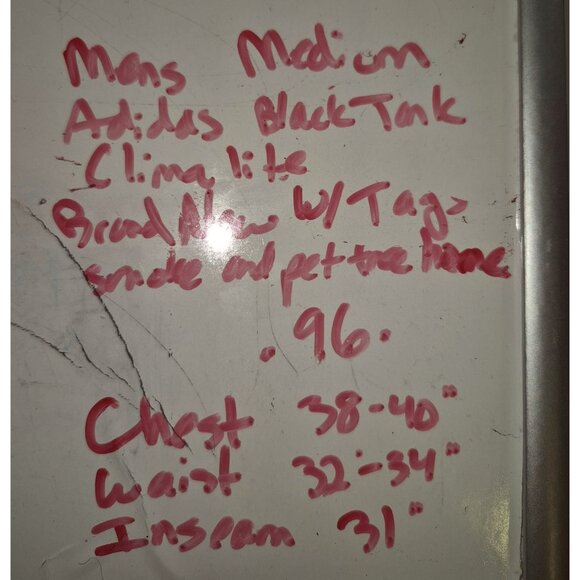 Mens Medium
Adidas Black Tank
Clima lite
Brand New w/ Tags
smoke and pet free home
.96.
Chest 38-40"
Waist 32"-34"
Inseam 31"